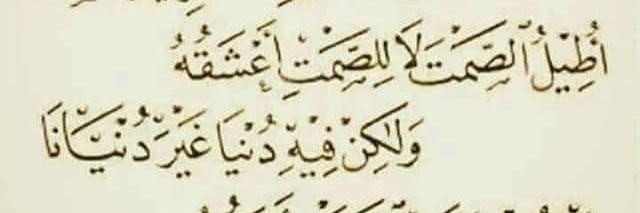 أُطِيْلُ الصَّمْتَ لَا لِلصَّمْتِ أَعْشَقُهُ
وَلٰكِنْ فِيْهِ دُنْيَا غَيْرَ دُنْيَانَا